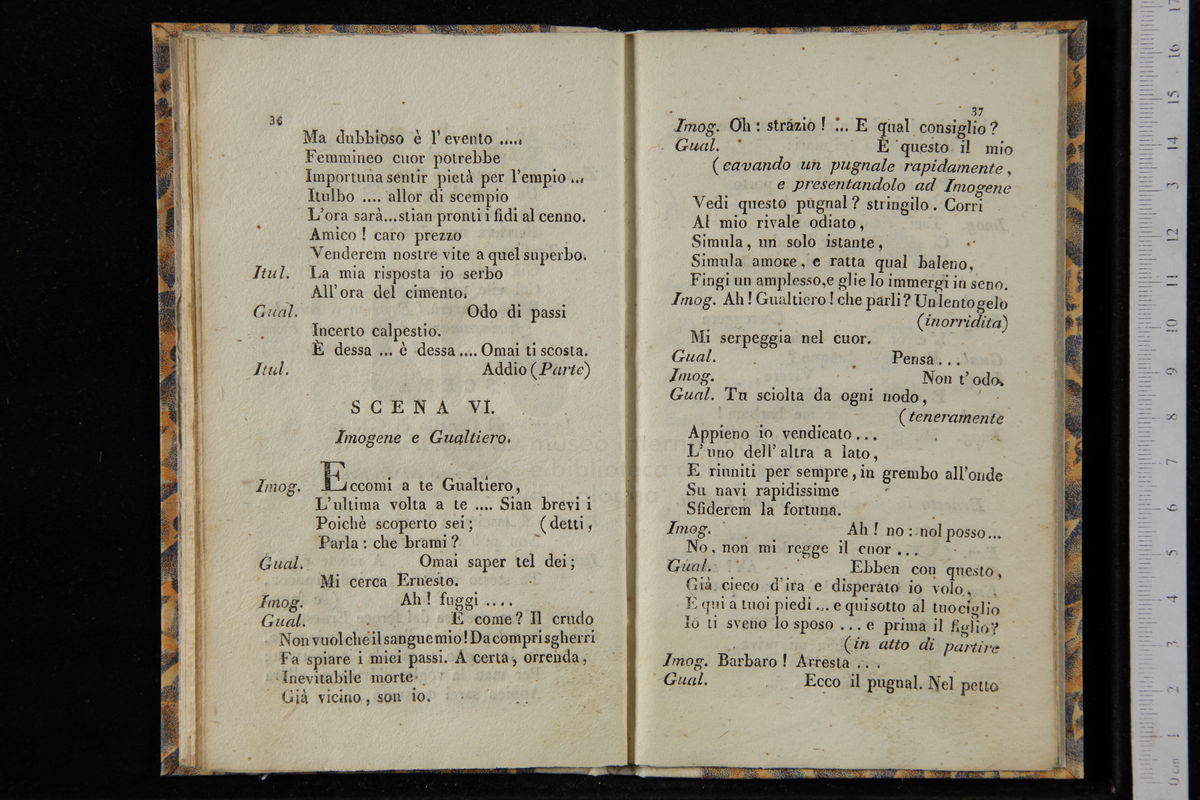 36
Ma dubbioso è l'evento .....
Femmineo cuor potrebbe
Importuna sentir pietà per l'empio ...
Itulbo .... allor di scempio
L'ora sarà...stian pronti i fidi al cenno.
Amico ! caro prezzo
Venderem nostre vite a quel superbo.
Itul. La mia risposta io serbo
All'ora del cimento.
Gual. Odo di passi
Incerto calpestio.
È dessa ... è dessa .... Omai ti scosta.
Itul. Addio (Parte)
SCENA VI.
Imogene e Gualtiero.
Imog. Eccomi a te Gualtiero,
L'ultima volta a te .... Sian brevi i
Poichè scoperto sei ; (detti,
Parla : che brami ?
Gual. Omai saper tel dei ;
Mi cerca Ernesto.
Imog. Ah ! fuggi ....
Gual. E come ? Il crudo
Non vuol che il sangue mio ! Da compri sgherri
Fa spiare i miei passi. A certa, orrenda,
Inevitabile morte
Già vicino, son io.
37
Imog. Oh : strazio ! ... E qual consiglio ?
Gual. È questo il mio
(cavando un pugnale rapidamente,
e presentandolo ad Imogene
Vedi questo pugnal ? stringilo. Corri
Al mio rivale odiato,
Simula, un solo istante,
Simula amore, e ratta qual baleno,
Fingi un amplesso, e glie lo immergi in seno.
Imog. Ah ! Gualtiero ! che parli ? Un lento gelo
(inorridita)
Mi serpeggia nel cuor.
Gual. Pensa ...
Imog. Non t'odo.
Gual. Tu sciolta da ogni nodo,
(teneramente
Appieno io vendicato ...
L'uno dell'altra a lato,
E riuniti per sempre, in grembo all'onde
Su navi rapidissime
Sfiderem la fortuna.
Imog. Ah ! no : nol posso ...
No, non mi regge il cuor ...
Gual. Ebben con questo,
Già cieco d'ira e disperato io volo,
E qui a tuoi piedi ... e qui sotto al tuo ciglio
Io ti sveno lo sposo ... e prima il figlio ?
(in atto di partire
Imog. Barbaro ! Arresta ...
Gual. Ecco il pugnal. Nel petto
0 cm 1 2 3 4 5 6 7 8 9 10 11 12 13 14 15 16 17